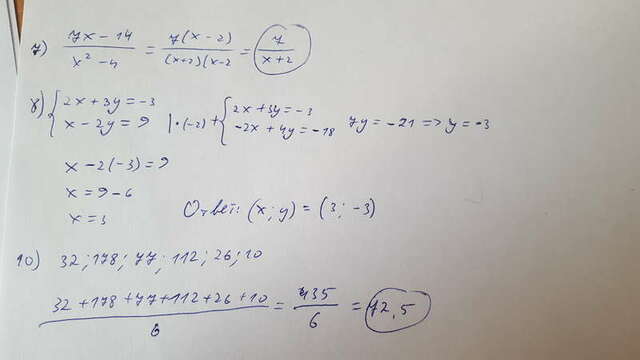 7) 7x - 14 / x² - 4 = 7(x - 2) / (x+2)(x-2) = 7 / x+2
8) { 2x + 3y = -3 { 2x + 3y = -3
x - 2y = 9 | · (-2) + -2x + 4y = -18 7y = -21 => y = -3
x - 2(-3) = 9
x = 9 - 6
x = 3 Ответ: (x; y) = (3; -3)
10) 32; 178; 77; 112; 26; 10
32 + 178 + 77 + 112 + 26 + 10 / 6 = 435 / 6 = 72,5